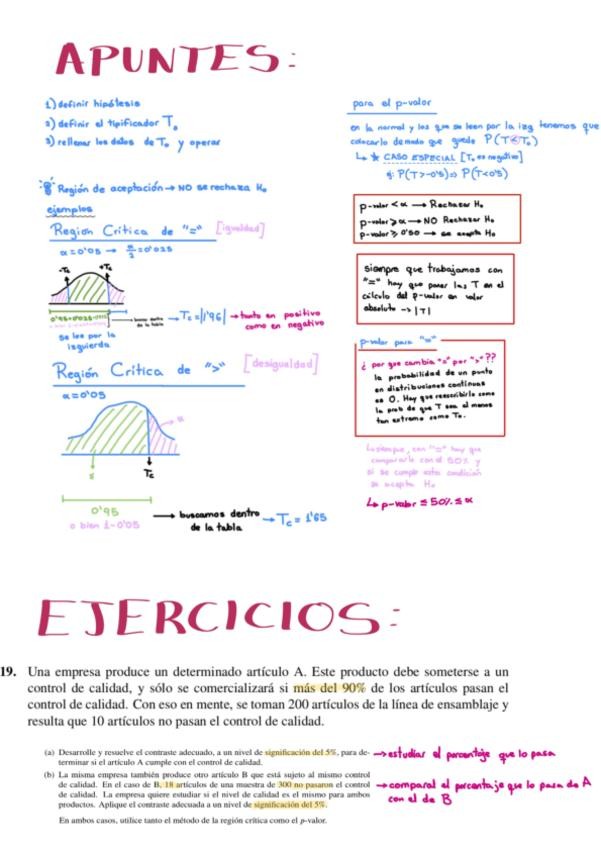 APUNTES:
1) definir hipótesis
2) definir el tipificador T₀
3) rellenar los datos de T₀ y operar
Región de aceptación → NO se rechaza H₀
ejemplos
Región Crítica de "=" [igualdad]
α=0'05 → α/2=0'025
-Tc +Tc
se lee por la
izquierda
buscamos dentro
de la tabla
→ Tc=|1'96| → tanto en positivo
como en negativo
Región Crítica de ">" [desigualdad]
α=0'05
α
Tc
0'95
o bien 1-0'05
→ buscamos dentro
de la tabla
→ Tc = 1'65
para el p-valor
en la normal y los que se leen por la izq tenemos que
colocarlo de modo que quede P(T<T₀)
↳ ★ CASO ESPECIAL [T₀ es negativo]
P(T>-0'5) => P(T<0'5)
p-valor < α → Rechazar H₀
p-valor > α → NO Rechazar H₀
p-valor ≥ 0'50 → se acepta H₀
siempre que trabajamos con
"=" hay que poner las T en el
cálculo del p-valor en valor
absoluto → |T|
p-valor para "="
¿por que cambia "=" por ">"??
la probabilidad de un punto
en distribuciones continuas
es 0. Hay que reescribirlo como
la prob de que T sea al menos
tan extremo como T₀.
con "=" hay que
compararlo con el 50% y
si se cumple esta condición
se acepta H₀
↳ p-valor ≤ 50% ≤ α
EJERCICIOS:
19. Una empresa produce un determinado artículo A. Este producto debe someterse a un
control de calidad, y sólo se comercializará si más del 90% de los artículos pasan el
control de calidad. Con eso en mente, se toman 200 artículos de la línea de ensamblaje y
resulta que 10 artículos no pasan el control de calidad.
(a) Desarrolle y resuelve el contraste adecuado, a un nivel de significación del 5%, para de-
terminar si el artículo A cumple con el control de calidad.
→ estudiar el porcentaje que lo pasa
(b) La misma empresa también produce otro artículo B que está sujeto al mismo control
de calidad. En el caso de B, 18 artículos de una muestra de 300 no pasaron el control
de calidad. La empresa quiere estudiar si el nivel de calidad es el mismo para ambos
productos. Aplique el contraste adecuada a un nivel de significación del 5%.
→ comparar el porcentaje que lo pasa de A
con el de B
En ambos casos, utilice tanto el método de la región crítica como el p-valor.